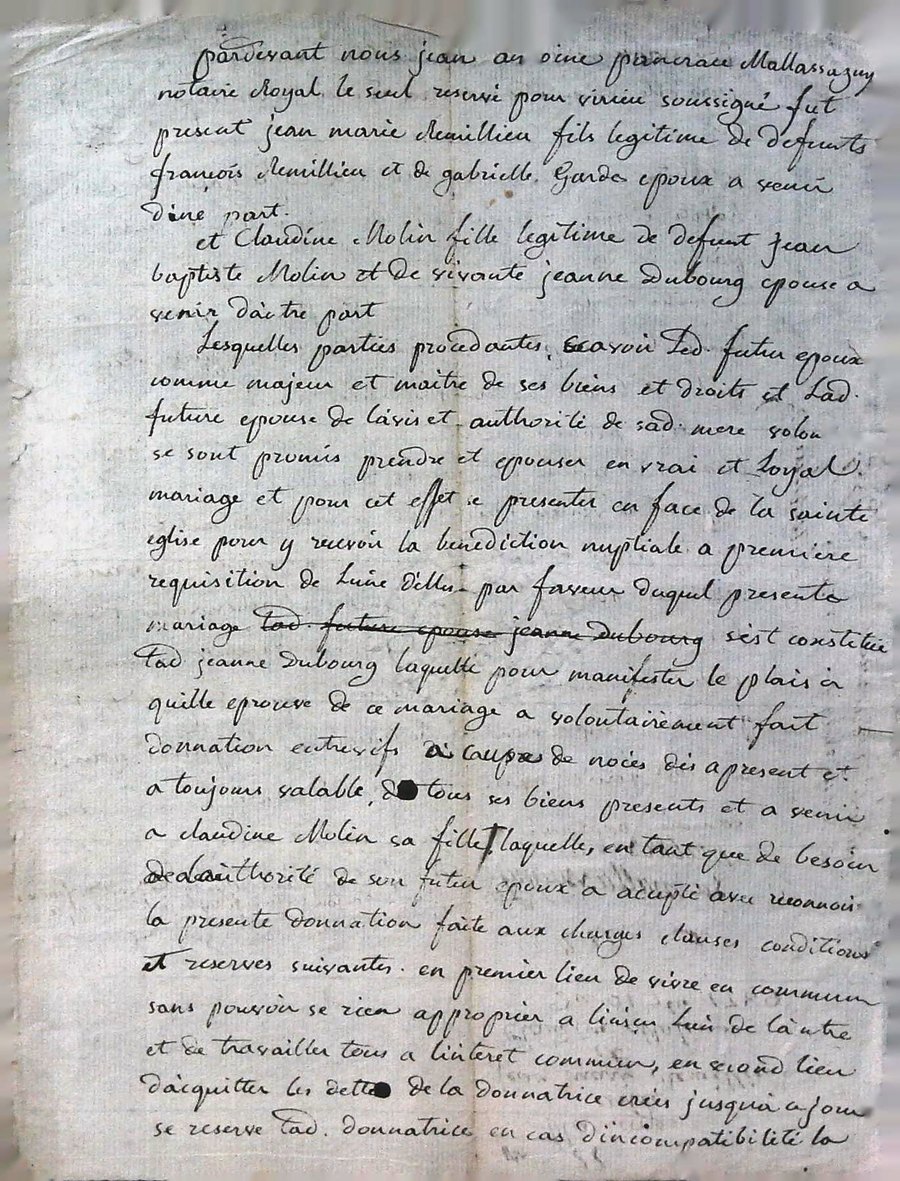 pardevant nous jean an oine pancrace Mallassagny
notaire Royal le seul reservé pour virieu soussigné fut
present jean marie Remillieu fils legitime de defunts
francois Remillieu et de gabrielle Garde epoux a venir
dúne part.
et Claudine Molin fille legitime de defunt jean
baptiste Molin et de vivante jeanne Dubourg epouse a
venir dáutre part
Lesquelles parties procedantes, scavoir Led. futur epoux
comme majeur et maitre de ses biens et droits et Lad.
future epouse de lávis et authorité de sad. mere volon
se sont promis prendre et epouser en vrai et Loyal
mariage et pour cet effet se presenter en face de la sainte
eglise pour y recevoir la benediction nuptiale a premiere
requisition de Lúne délles par faveur duquel presente
mariage Lad. future epouse jeanne Dubourg sést constituée
Lad jeanne Dubourg laquelle pour manifester le plaisir
quélle eprouve de ce mariage a volontairement fait
donnation entrevifs a cause de noces dés apresent et
a toujours valable, de tous ses biens presents et a venir
a claudine Molin sa fille laquelle, en tant que de besoin
de lauthorité de son futur epoux a accepté avec reconnois
la presente donnation faite aux charges clauses conditions
et reserves suivantes. en premier lieu de vivre en commun
sans pouvoir se rien approprier a línsçu lún de láutre
et de travailler tous a línteret commun, en second lieu
dácquitter les dettes de la donnatrice crées jusquá ce jour
se reserve Lad. donnatrice en cas díncompatibilité la